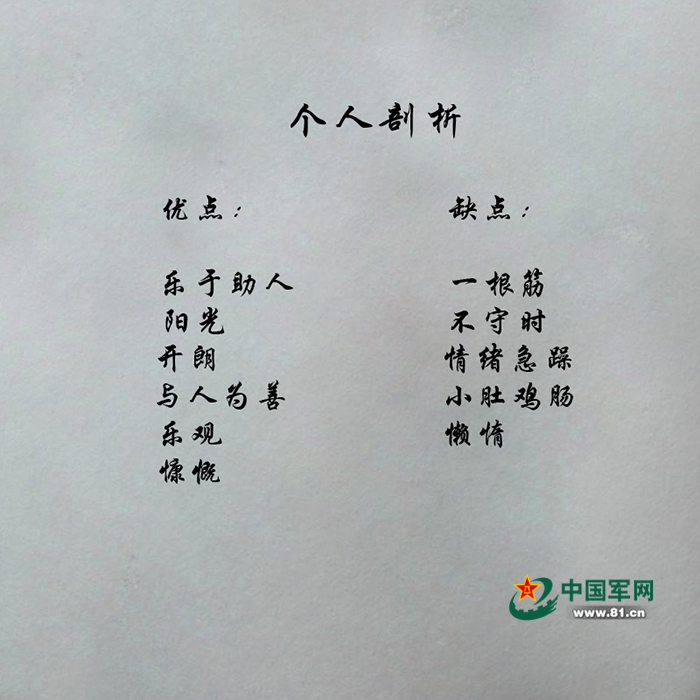 个人剖析
优点：
乐于助人
阳光
开朗
与人为善
乐观
慷慨
缺点：
一根筋
不守时
情绪急躁
小肚鸡肠
懒惰
中国军网
www.81.cn